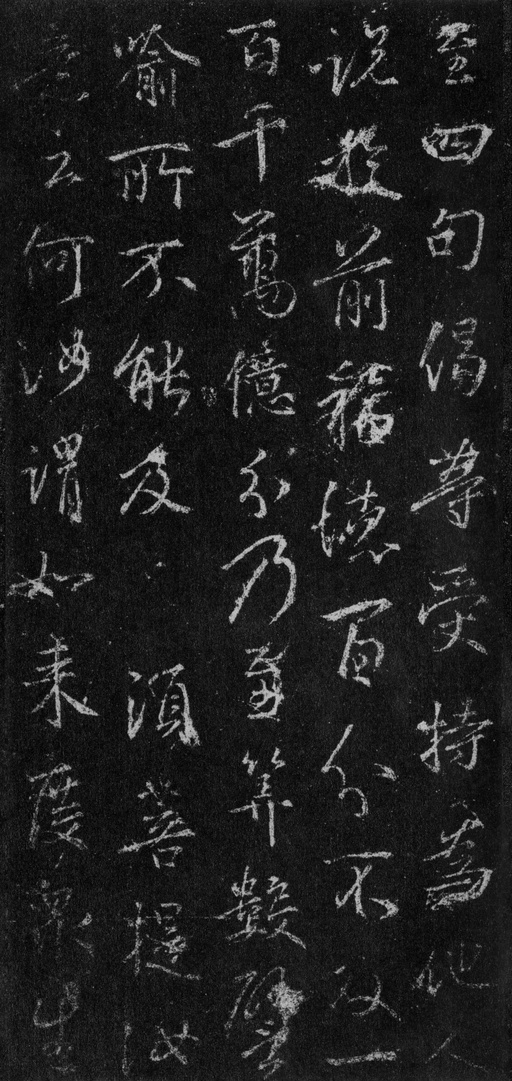 至四句偈等受持為他人
説於前福德百分不及一
百千萬億分乃至筭數譬
喻所不能及須菩提汝
意云何汝謂如來度眾生